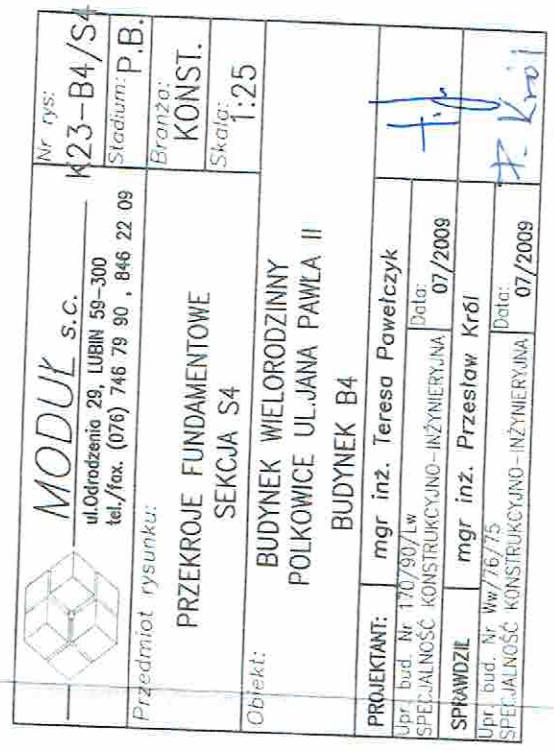 MODUŁ s.c.
ul.Odrodzenia 29, LUBIN 59-300
tel./fax. (076) 746 79 90 , 846 22 09
Nr rys:
K23-B4/S4
Przedmiot rysunku:
PRZEKROJE FUNDAMENTOWE
SEKCJA S4
Stadium: P.B.
Branża:
KONST.
Skala:
1:25
Obiekt:
BUDYNEK WIELORODZINNY
POLKOWICE UL.JANA PAWŁA II
BUDYNEK B4
PROJEKTANT: mgr inż. Teresa Pawełczyk
Upr. bud. Nr 170/90/Lw
SPECJALNOŚĆ KONSTRUKCYJNO-INŻYNIERYJNA
Data:
07/2009
SPRAWDZIŁ mgr inż. Przesław Król
Upr. bud. Nr Ww/76/75
SPECJALNOŚĆ KONSTRUKCYJNO-INŻYNIERYJNA
Data:
07/2009
P. Król